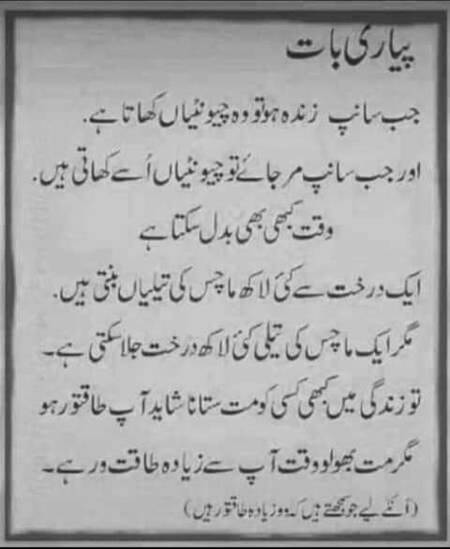 پیاری بات
جب سانپ زندہ ہو تو وہ چیونٹیاں کھاتا ہے.
اور جب سانپ مر جائے تو چیونٹیاں اُسے کھاتی ہیں.
وقت کبھی بھی بدل سکتا ہے
ایک درخت سے کئی لاکھ ماچس کی تیلیاں بنتی ہیں.
مگر ایک ماچس کی تیلی کئی لاکھ درخت جلا سکتی ہے۔
تو زندگی میں کبھی کسی کو مت ستانا شاید آپ طاقتور ہو
مگر مت بھولو وقت آپ سے زیادہ طاقت ور ہے۔
(اُنکے لیے جو سمجھتے ہیں کہ وہ زیادہ طاقتور ہیں)